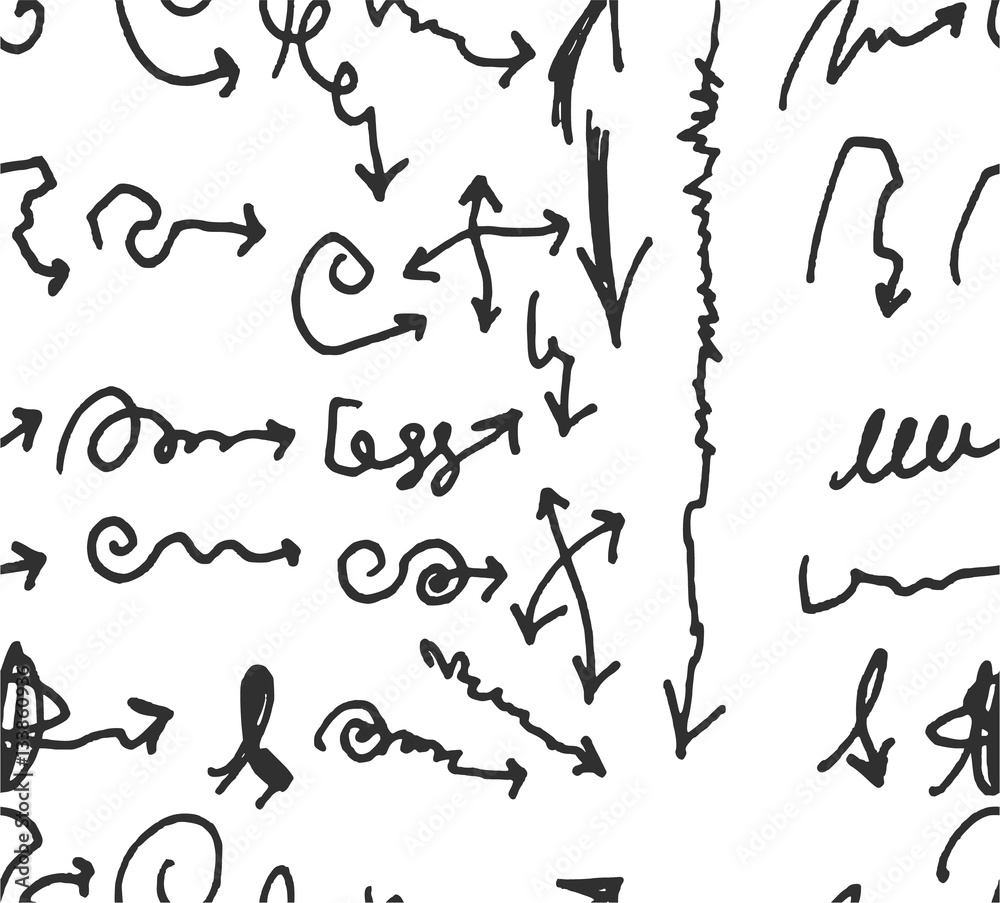 Adobe Stock | #133860936